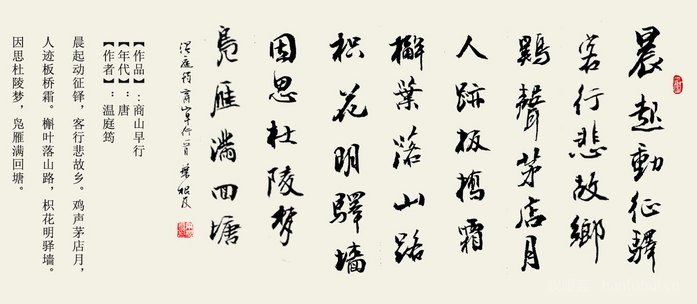 晨起動征驛
客行悲故鄉
鷄聲茅店月
人跡板橋霜
槲葉落山路
枳花明驛墻
因思杜陵梦
鳧雁滿回塘
温庭筠商山早行一首 葉根友
【作品】:商山早行
【年代】:唐
【作者】:温庭筠
晨起动征铎,客行悲故乡。鸡声茅店月,
人迹板桥霜。槲叶落山路,枳花明驿墙。
因思杜陵梦,凫雁满回塘。